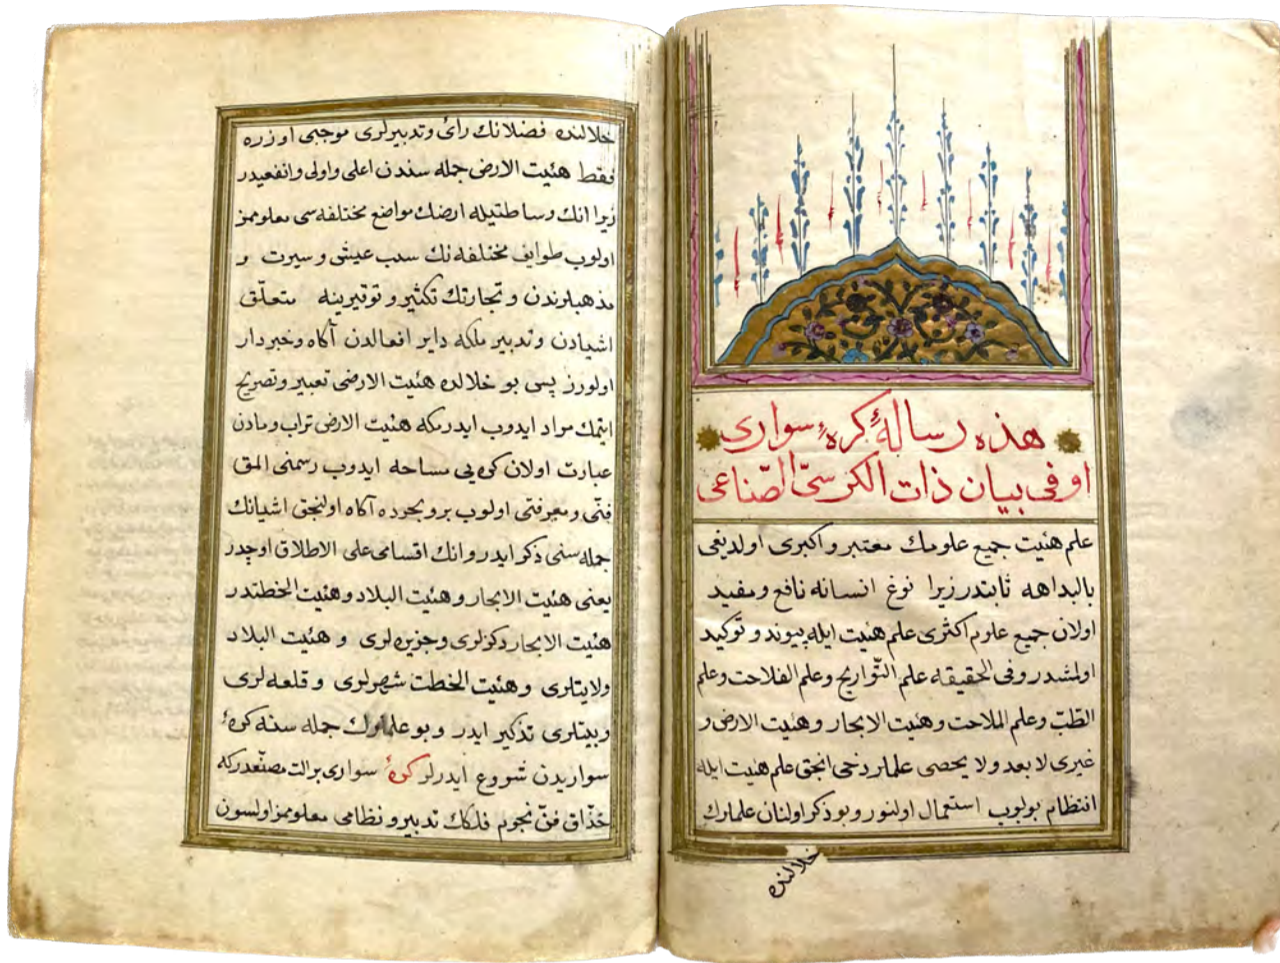 هذه رسالهٔ كرهٔ سوارى
او فى بيان ذات الكرسىّ الصّناعى
علم هئيت جميع علومك معتبر و اكبرى اولديغى
بالبداهه ثابتدر زيرا نوع انسانه نافع و مفيد
اولان جميع علوم اكثرى علم هئيت ايله پيوند و توكيد
اولمشدر و فى الحقيقه علم التّواريخ و علم الفلاحت و علم
الطّبّ و علم الملاحت و هئيت الابحار و هئيت الارض و
غيرى لا بعد ولا يحصى علملر دخى انجق علم هئيت ايله
انتظام بولوب استعمال اولنور و بو ذكر اولنان علملرك
خلالنده
خلالنده فضلانك رائ و تدبيرلرى موجبى اوزره
فقط هئيت الارض جمله سندن اعلى و اولى و انفعيدر
زيرا انك وساطتيله ارضك مواضع مختلفه سى معلوممز
اولوب طوايف مختلفه نك سبب عيش و سيرت و
مذهبلرندن و تجارتك تكثير و توقيرينه متعلّق
اشيادن و تدبير ملكه داير افعالدن آكاه و خبردار
اولورز پس بو خلالده هئيت الارضى تعبير و تصريح
ايتمك مراد ايدوب ايدرمكه هئيت الارض تراب و مادن
عبارت اولان كره يى مساحه ايدوب رسمنى المق
فنّى و معرفتى اولوب بر و بحرده آكاه اولنجق اشيانك
جمله سنى ذكر ايدر و انك اقسامى على الاطلاق اوچدر
يعنى هئيت الابحار و هئيت البلاد و هئيت الخطتدر
هئيت الابحار دكزلرى و جزيره لرى و هئيت البلاد
ولايتلرى و هئيت الخطت شهرلرى و قلعه لرى
و بيتلرى تذكير ايدر و بو علملرك جمله سنه كرهٔ
سواريدن شروع ايدرلر كرهٔ سوارى بر الت مصنّعدركه
حذّاق فنّ نجوم فلكك تدبير و نظامى معلوممز اولسون